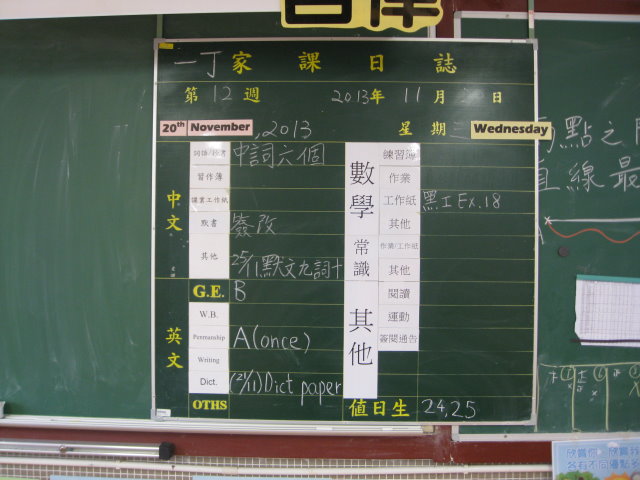 一丁家課日誌
第12週 2013年11月 日
20th November, 2013 星期三 Wednesday
中文
詞語/抄書 中詞六個
習作簿
課業工作紙
默書 簽改
其他 25/11默文九詞十
英文
G.E. B
W.B.
Penmanship A(once)
Writing
Dict. (21/11) Dict paper
OTHS
數學
練習簿
作業
工作紙 黑工Ex.18
其他
常識
作業/工作紙
其他
其他
閱讀
運動
簽閱通告
值日生 24,25
點之
直線最
欣賞你 欣賞我
各有不同優點多